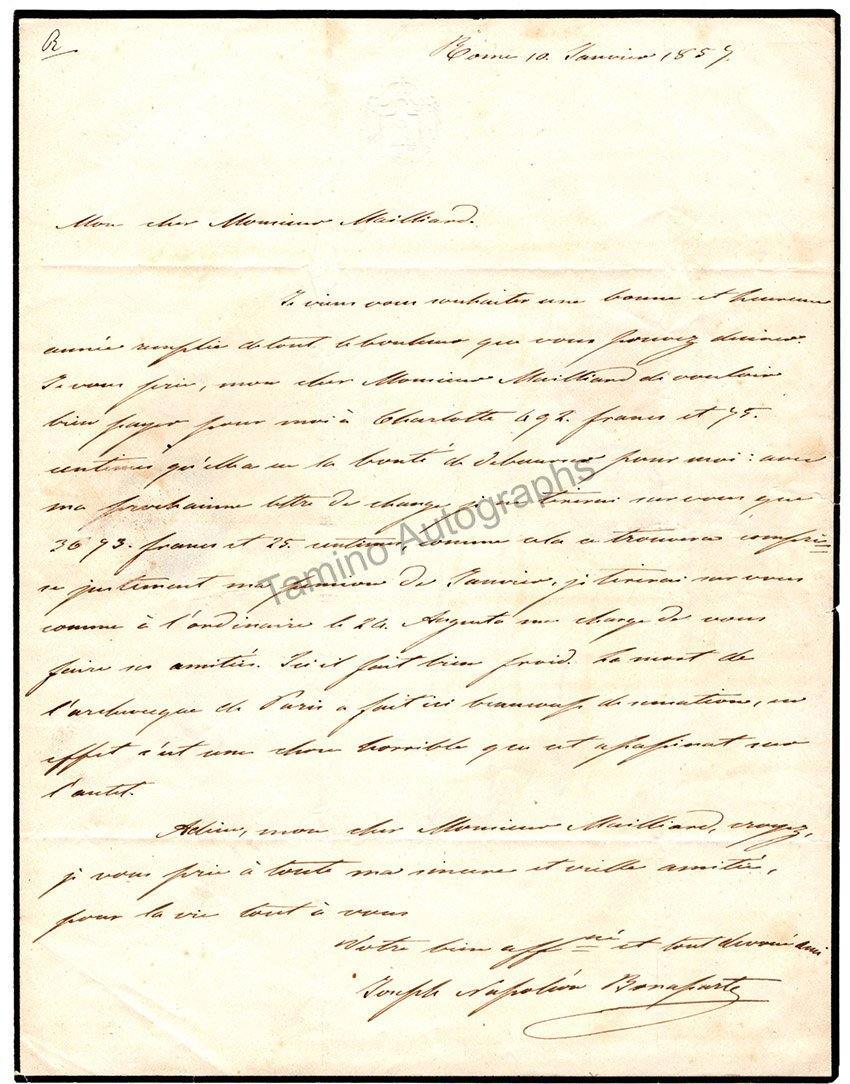 R
Rome 10. Janvier 1857.
Mon cher Monsieur Mailliard.
Je viens vous souhaiter une bonne et heureuse
année remplie de tout le bonheur que vous pouvez désirer.
Je vous prie, mon cher Monsieur Mailliard de vouloir
bien payer pour moi à Charlotte 492. francs et 75.
centimes qu'elle a eu la bonté de débourser pour moi: avec
ma prochaine lettre de change je ne tirerai sur vous que
3693. francs et 25. centimes, comme cela se trouvera comprise
justement ma pension de Janvier, je tirerai sur vous
comme à l'ordinaire le 20. Augusta me charge de vous
faire ses amitiés. Ici il fait bien froid. La mort de
l'archevêque de Paris a fait ici beaucoup de sensation, en
effet c'est une chose horrible que cet assassinat sur
l'autel.
Adieu, mon cher Monsieur Mailliard, croyez,
je vous prie à toute ma sincère et vieille amitié,
pour la vie tout à vous
Votre bien affné et tout dévoué ami
Joseph Napoléon Bonaparte
Tamino Autographs